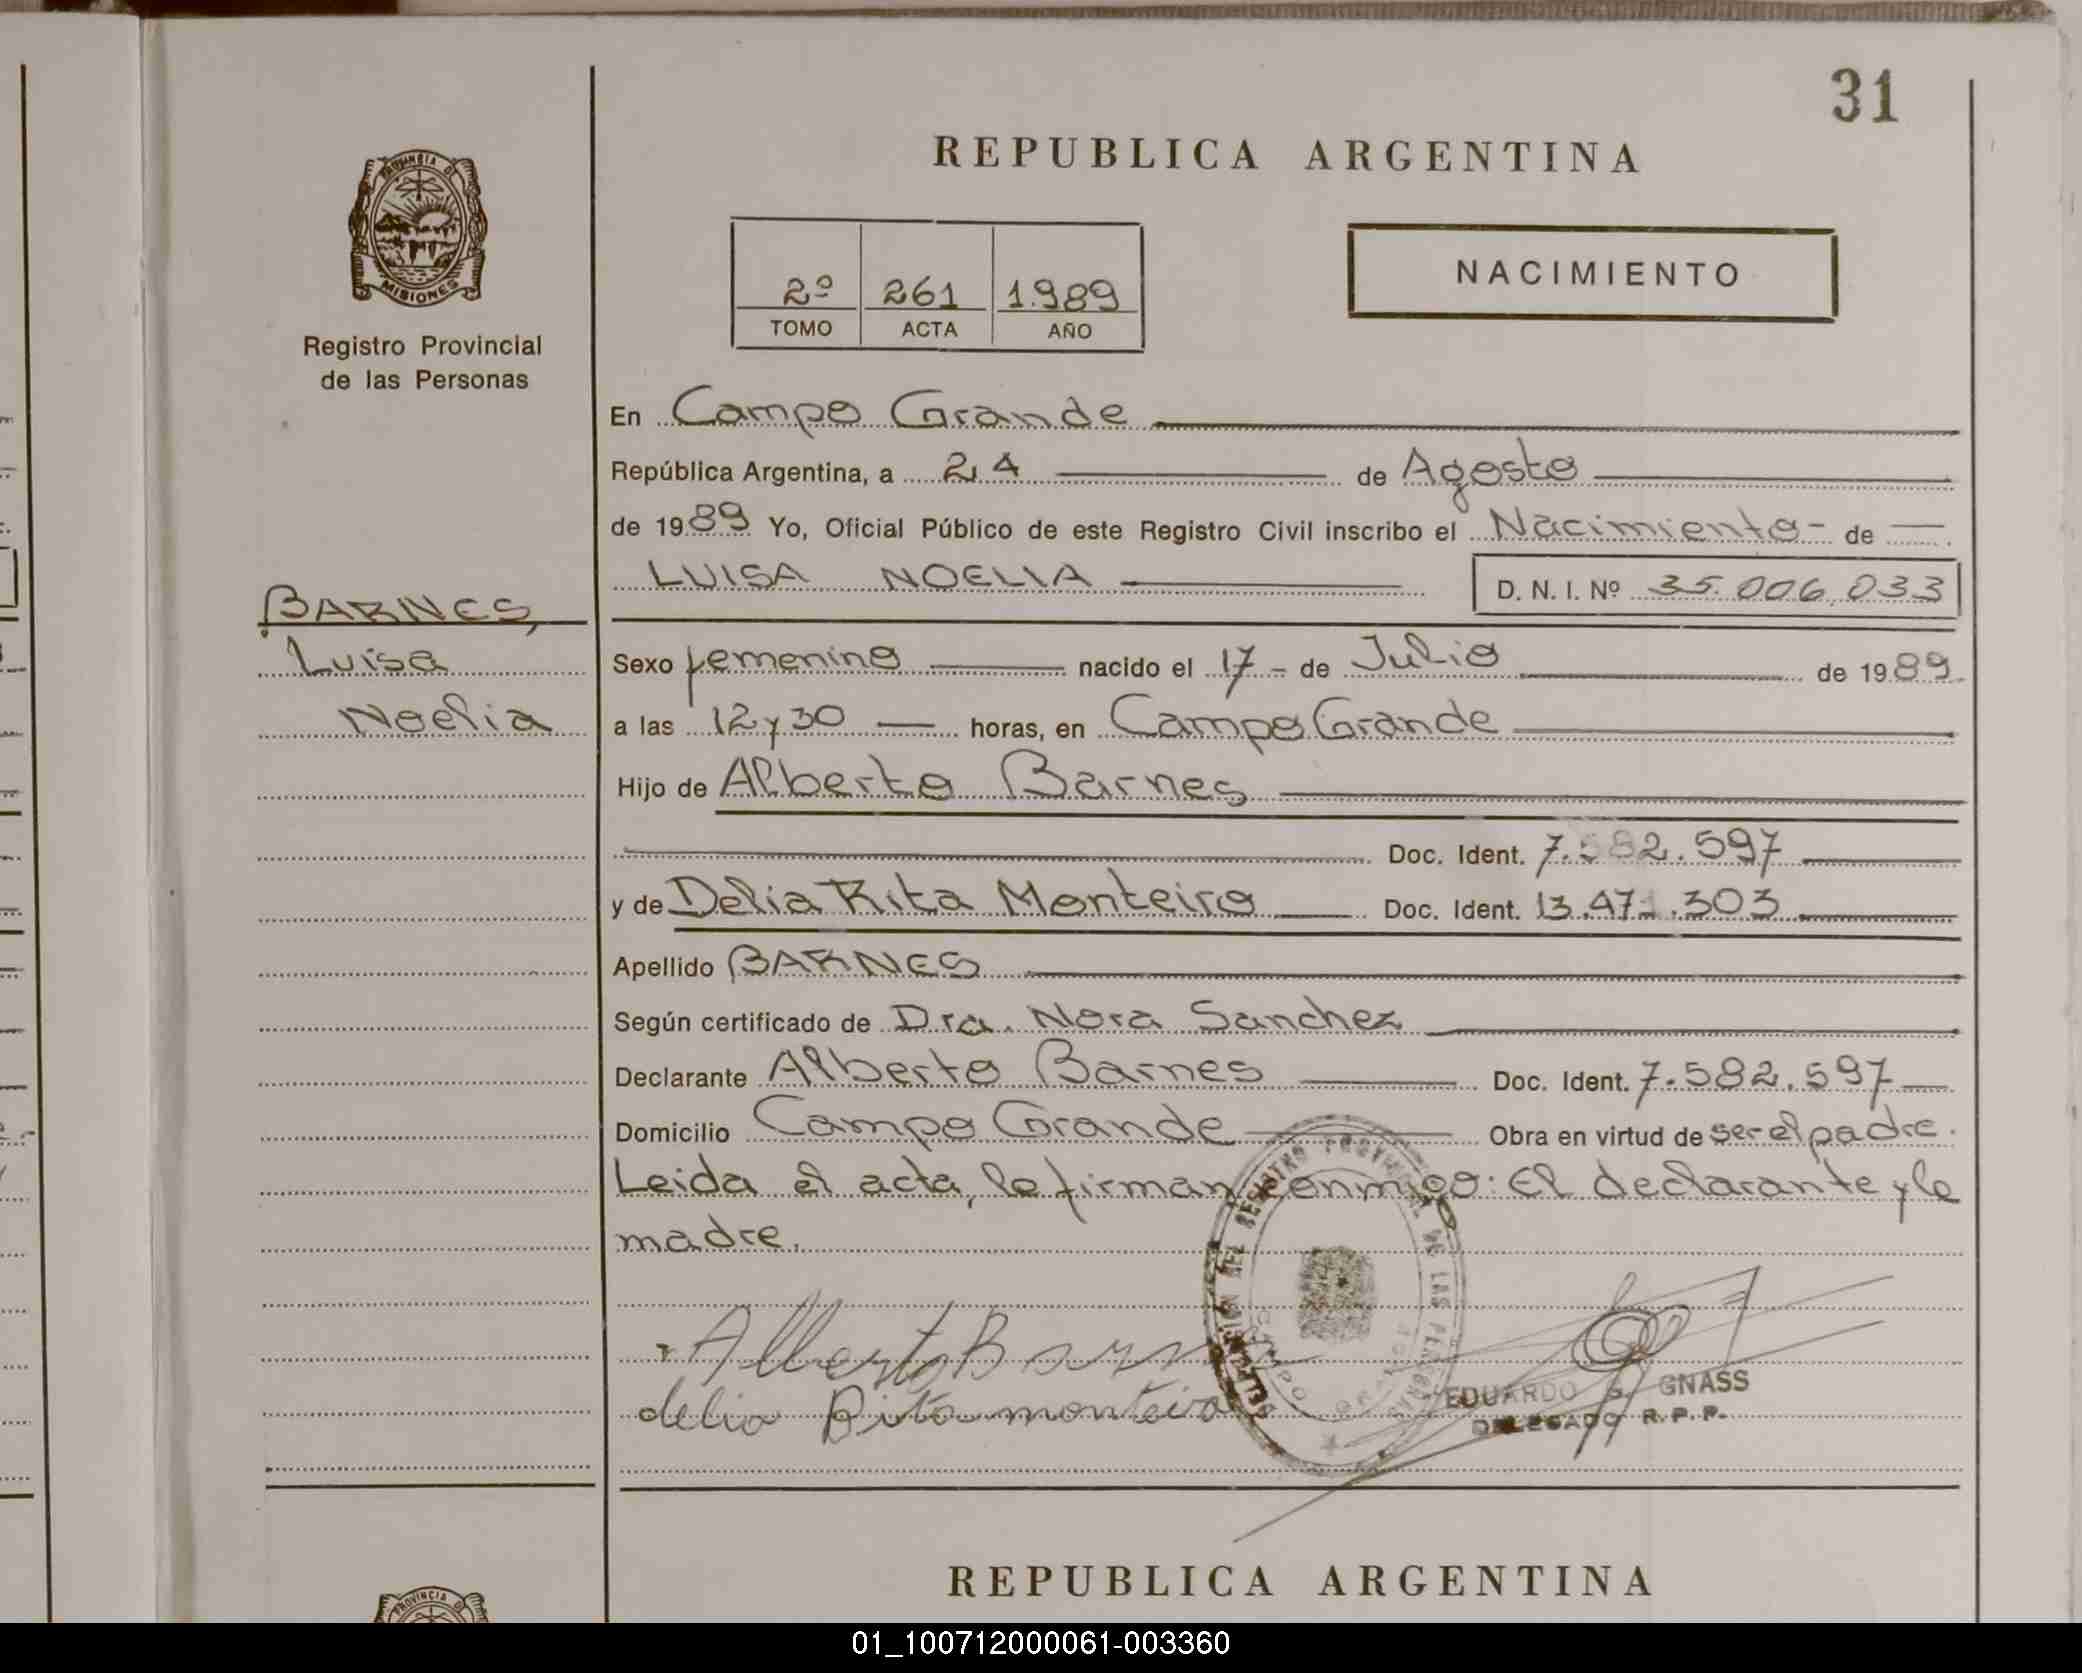 31
REPUBLICA ARGENTINA
PROVINCIA DE
MISIONES
Registro Provincial
de las Personas
2º 261 1.989
TOMO ACTA AÑO
NACIMIENTO
En Campo Grande
República Argentina, a 24 de Agosto
de 1989 Yo, Oficial Público de este Registro Civil inscribo el Nacimiento - de
LUISA NOELIA D. N. I. Nº 35.006.033
BARNES,
Luisa
Noelia
Sexo femenino nacido el 17 - de Julio de 1989
a las 12 y 30 horas, en Campo Grande
Hijo de Alberto Barnes
Doc. Ident. 7.582.597
y de Delia Rita Monteiro Doc. Ident. 13.471.303
Apellido BARNES
Según certificado de Dra. Nora Sanchez
Declarante Alberto Barnes Doc. Ident. 7.582.597
Domicilio Campo Grande Obra en virtud de ser el padre.
Leida el acta, la firman conmigo: El declarante y la
madre.
Alberto Barn
delia Rita monteiro
REGISTRO PROVINCIAL DE LAS PERSONAS
CAMPO GRANDE
EDUARDO G. GNASS
DELEGADO R.P.P.
REPUBLICA ARGENTINA
PROVINCIA DE
01_100712000061-003360